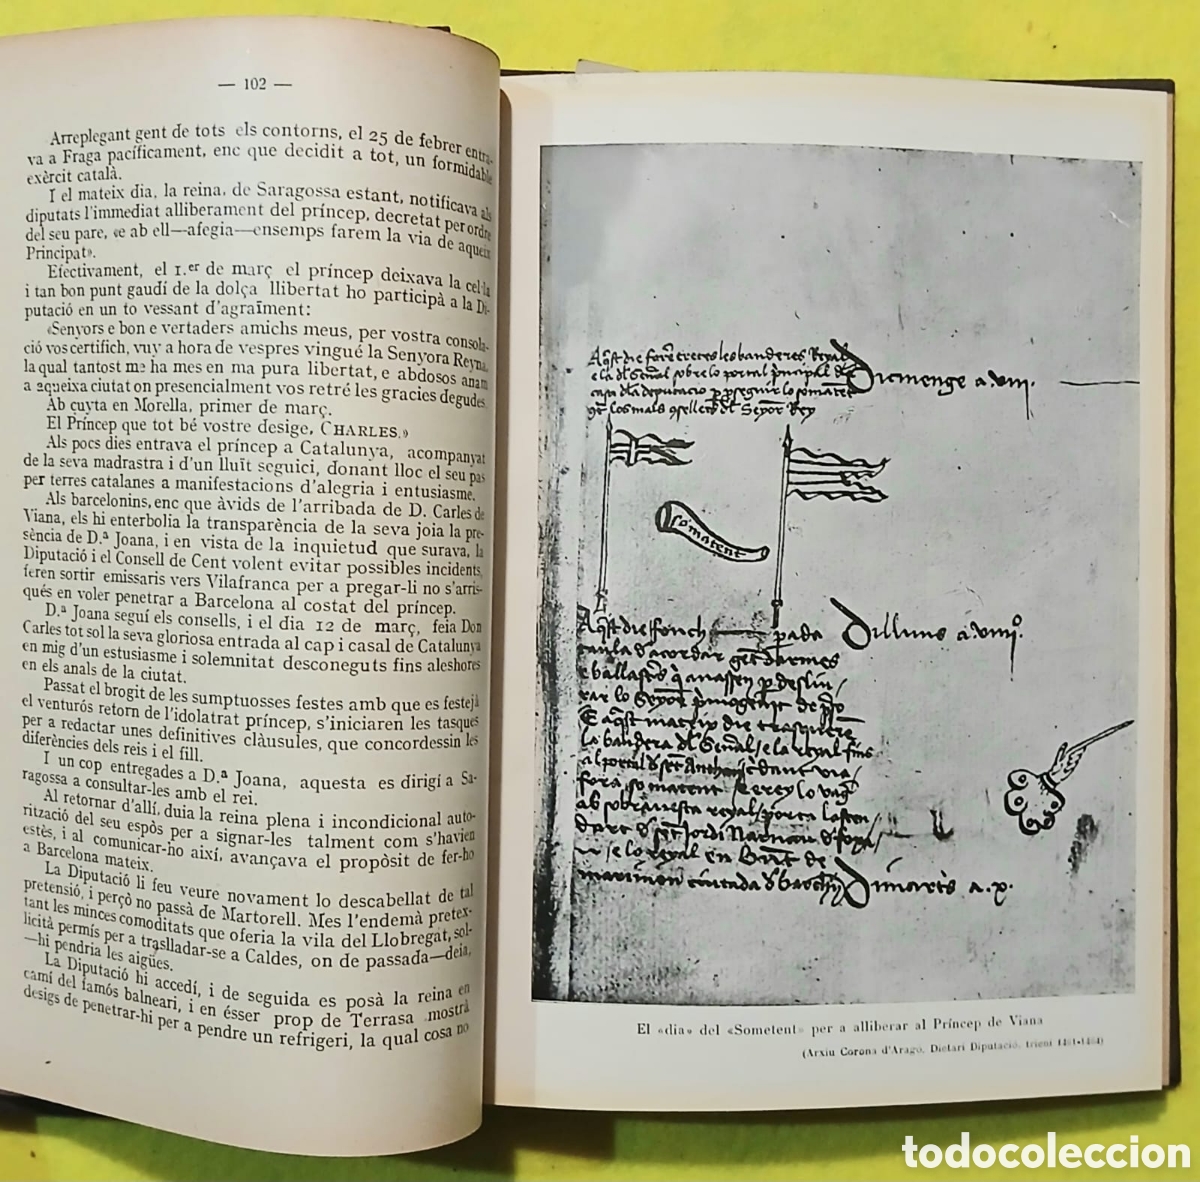 — 102 —
Arreplegant gent de tots els contorns, el 25 de febrer entra-
va a Fraga pacíficament, enc que decidit a tot, un formidable
exèrcit català.
I el mateix dia, la reina, de Saragossa estant, notificava als
diputats l'immediat alliberament del príncep, decretat per ordre
del seu pare, «e ab ell—afegia—ensemps farem la via de aqueix
Principat».
Efectivament, el 1.er de març el príncep deixava la cel·la
i tan bon punt gaudí de la dolça llibertat ho participà a la Di-
putació en un to vessant d'agraïment:
«Senyors e bon e vertaders amichs meus, per vostra consola-
ció vos certifich, vuy a hora de vespres vingué la Senyora Reyna,
la qual tantost me ha mes en ma pura libertat, e abdosos anam
a aqueixa ciutat on presencialment vos retré les gracies degudes.
Ab cuyta en Morella, primer de març.
El Príncep que tot bé vostre desige, CHARLES.»
Als pocs dies entrava el príncep a Catalunya, acompanyat
de la seva madrastra i d'un lluït seguici, donant lloc el seu pas
per terres catalanes a manifestacions d'alegria i entusiasme.
Als barcelonins, enc que àvids de l'arribada de D. Carles de
Viana, els hi enterbolia la transparència de la seva joia la pre-
sència de D.ª Joana, i en vista de la inquietud que surava, la
Diputació i el Consell de Cent volent evitar possibles incidents,
feren sortir emissaris vers Vilafranca per a pregar-li no s'arris-
qués en voler penetrar a Barcelona al costat del príncep.
D.ª Joana seguí els consells, i el dia 12 de març, feia Don
Carles tot sol la seva gloriosa entrada al cap i casal de Catalunya
en mig d'un estusiasme i solemnitat desconeguts fins aleshores
en els anals de la ciutat.
Passat el brogit de les sumptuosses festes amb que es festejà
el venturós retorn de l'idolatrat príncep, s'iniciaren les tasques
per a redactar unes definitives clàusules, que concordessin les
diferències dels reis i el fill.
I un cop entregades a D.ª Joana, aquesta es dirigí a Sa-
ragossa a consultar-les amb el rei.
Al retornar d'allí, duia la reina plena i incondicional auto-
rització del seu espòs per a signar-les talment com s'havien
estès, i al comunicar-ho així, avançava el propòsit de fer-ho
a Barcelona mateix.
La Diputació li feu veure novament lo descabellat de tal
pretensió, i perçò no passà de Martorell. Mes l'endemà pretex-
tant les minces comoditats que oferia la vila del Llobregat, sol-
licità permís per a traslladar-se a Caldes, on de passada—deia,
—hi pendria les aigües.
La Diputació hi accedí, i de seguida es posà la reina en
camí del famós balneari, i en ésser prop de Terrasa mostrà
desigs de penetrar-hi per a pendre un refrigeri, la qual cosa no
Aqst die foren treces les banderes Reyal
e la dl Senal sobre lo portal principal de
casa dla deputacio p pseguir lo somatent
los mals Senyor Rey
Dicmenge a viii.
somatent
Aqst die fonch pada
taula d'acordar gent darmes
Dilluns a viiii°.
la bandera dl Senal e la reyal fins
al portal d sent Anthoni
fora somatent
sent Jordi
e lo reyal en
Dimarts a x.
El «dia» del «Sometent» per a alliberar al Príncep de Viana
(Arxiu Corona d'Aragó. Dietari Diputació, trieni 1461-1464)
todocoleccion